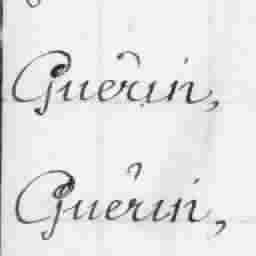 Guêrin,
Guêrin,